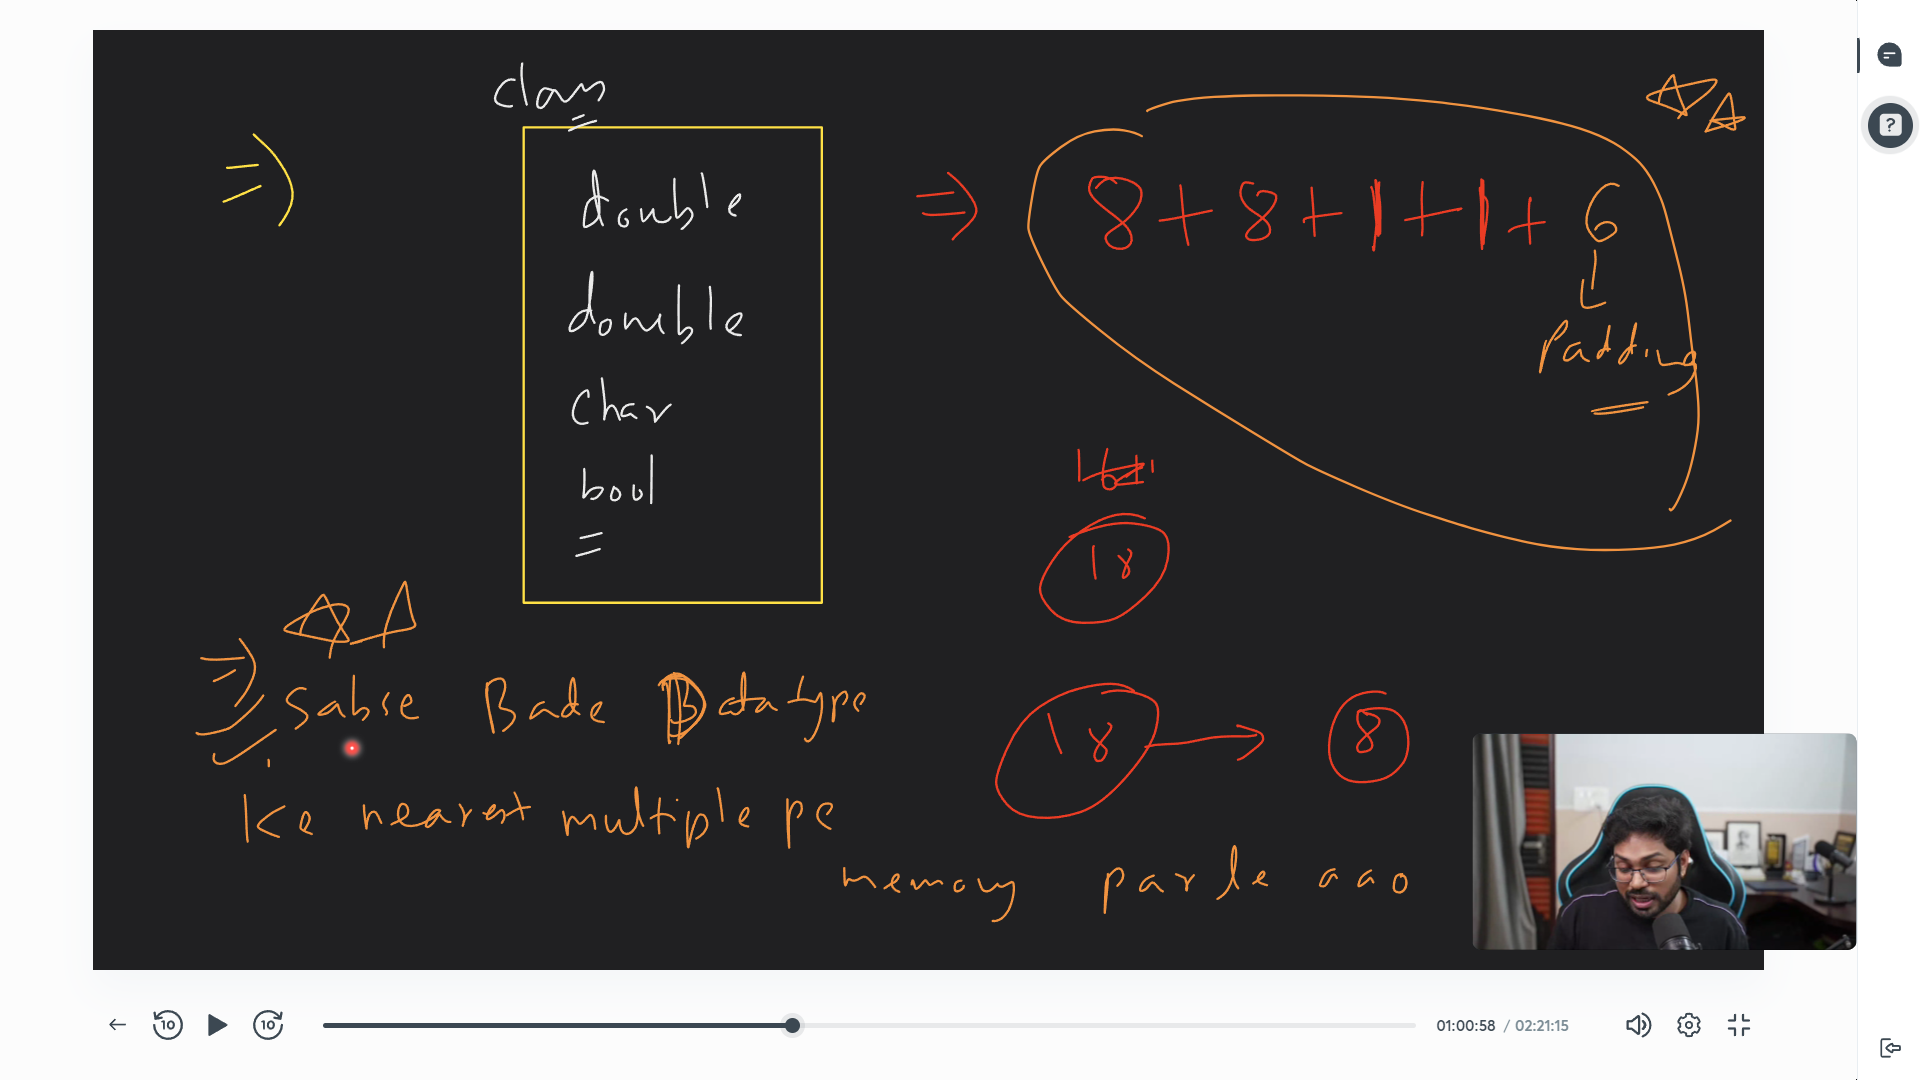 class
=)
double
double
char
bool
=
=) 8 + 8 + 1 + 1 + 6
Padding
18
=)
Sabse Bade Datatype
Ke nearest multiple pe
memory par le aao
18 → 8
10
10
01:00:58 / 02:21:15
?